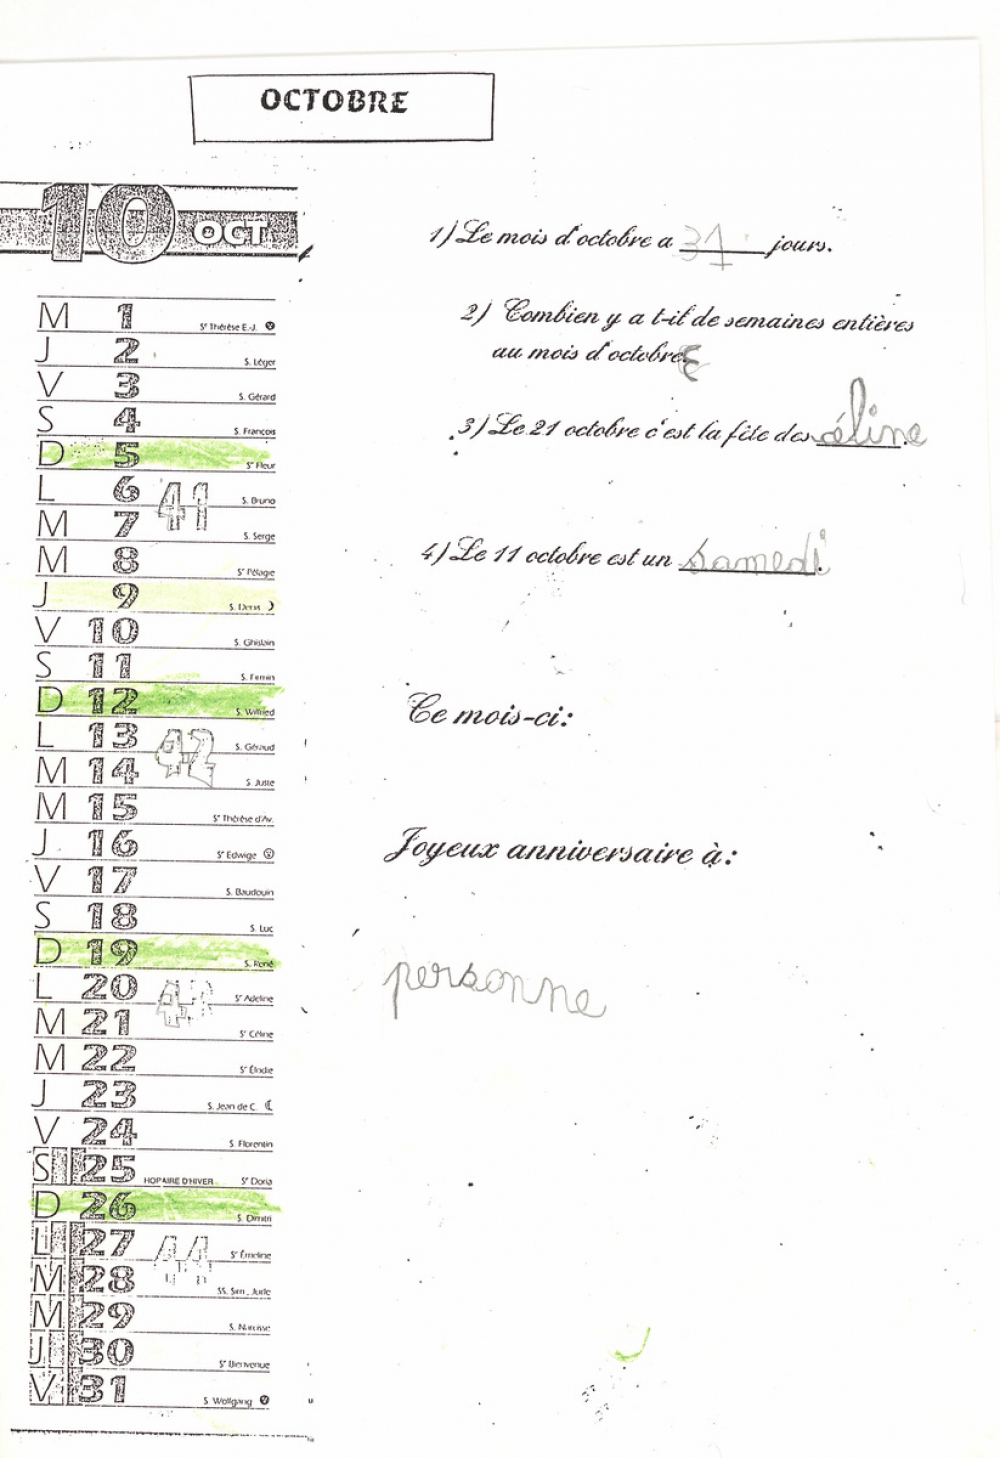 OCTOBRE
10 OCT.
M 1 Sᵉ Thérèse E.-J.
J 2 S. Léger
V 3 S. Gérard
S 4 S. François
D 5 Sᵉ Fleur
L 6 S. Bruno
41
M 7 S. Serge
M 8 Sᵉ Pélagie
J 9 S. Denis
V 10 S. Ghislain
S 11 S. Firmin
D 12 S. Wilfried
L 13 S. Géraud
42
M 14 S. Juste
M 15 Sᵉ Thérèse d'Av.
J 16 Sᵉ Edwige
V 17 S. Baudouin
S 18 S. Luc
D 19 S. René
L 20 Sᵉ Adeline
43
M 21 Sᵉ Céline
M 22 Sᵉ Élodie
J 23 S. Jean de C.
V 24 S. Florentin
S 25 HORAIRE D'HIVER Sᵉ Doria
D 26 S. Dimitri
L 27 Sᵉ Émeline
44
M 28 SS. Sim., Jude
M 29 S. Narcisse
J 30 Sᵉ Bienvenue
V 31 S. Wolfgang
1) Le mois d'octobre a 31 jours.
2) Combien y a t-il de semaines entières
au mois d'octobre
3) Le 21 octobre c'est la fête des céline.
4) Le 11 octobre est un samedi.
Ce mois-ci:
Joyeux anniversaire à:
personne